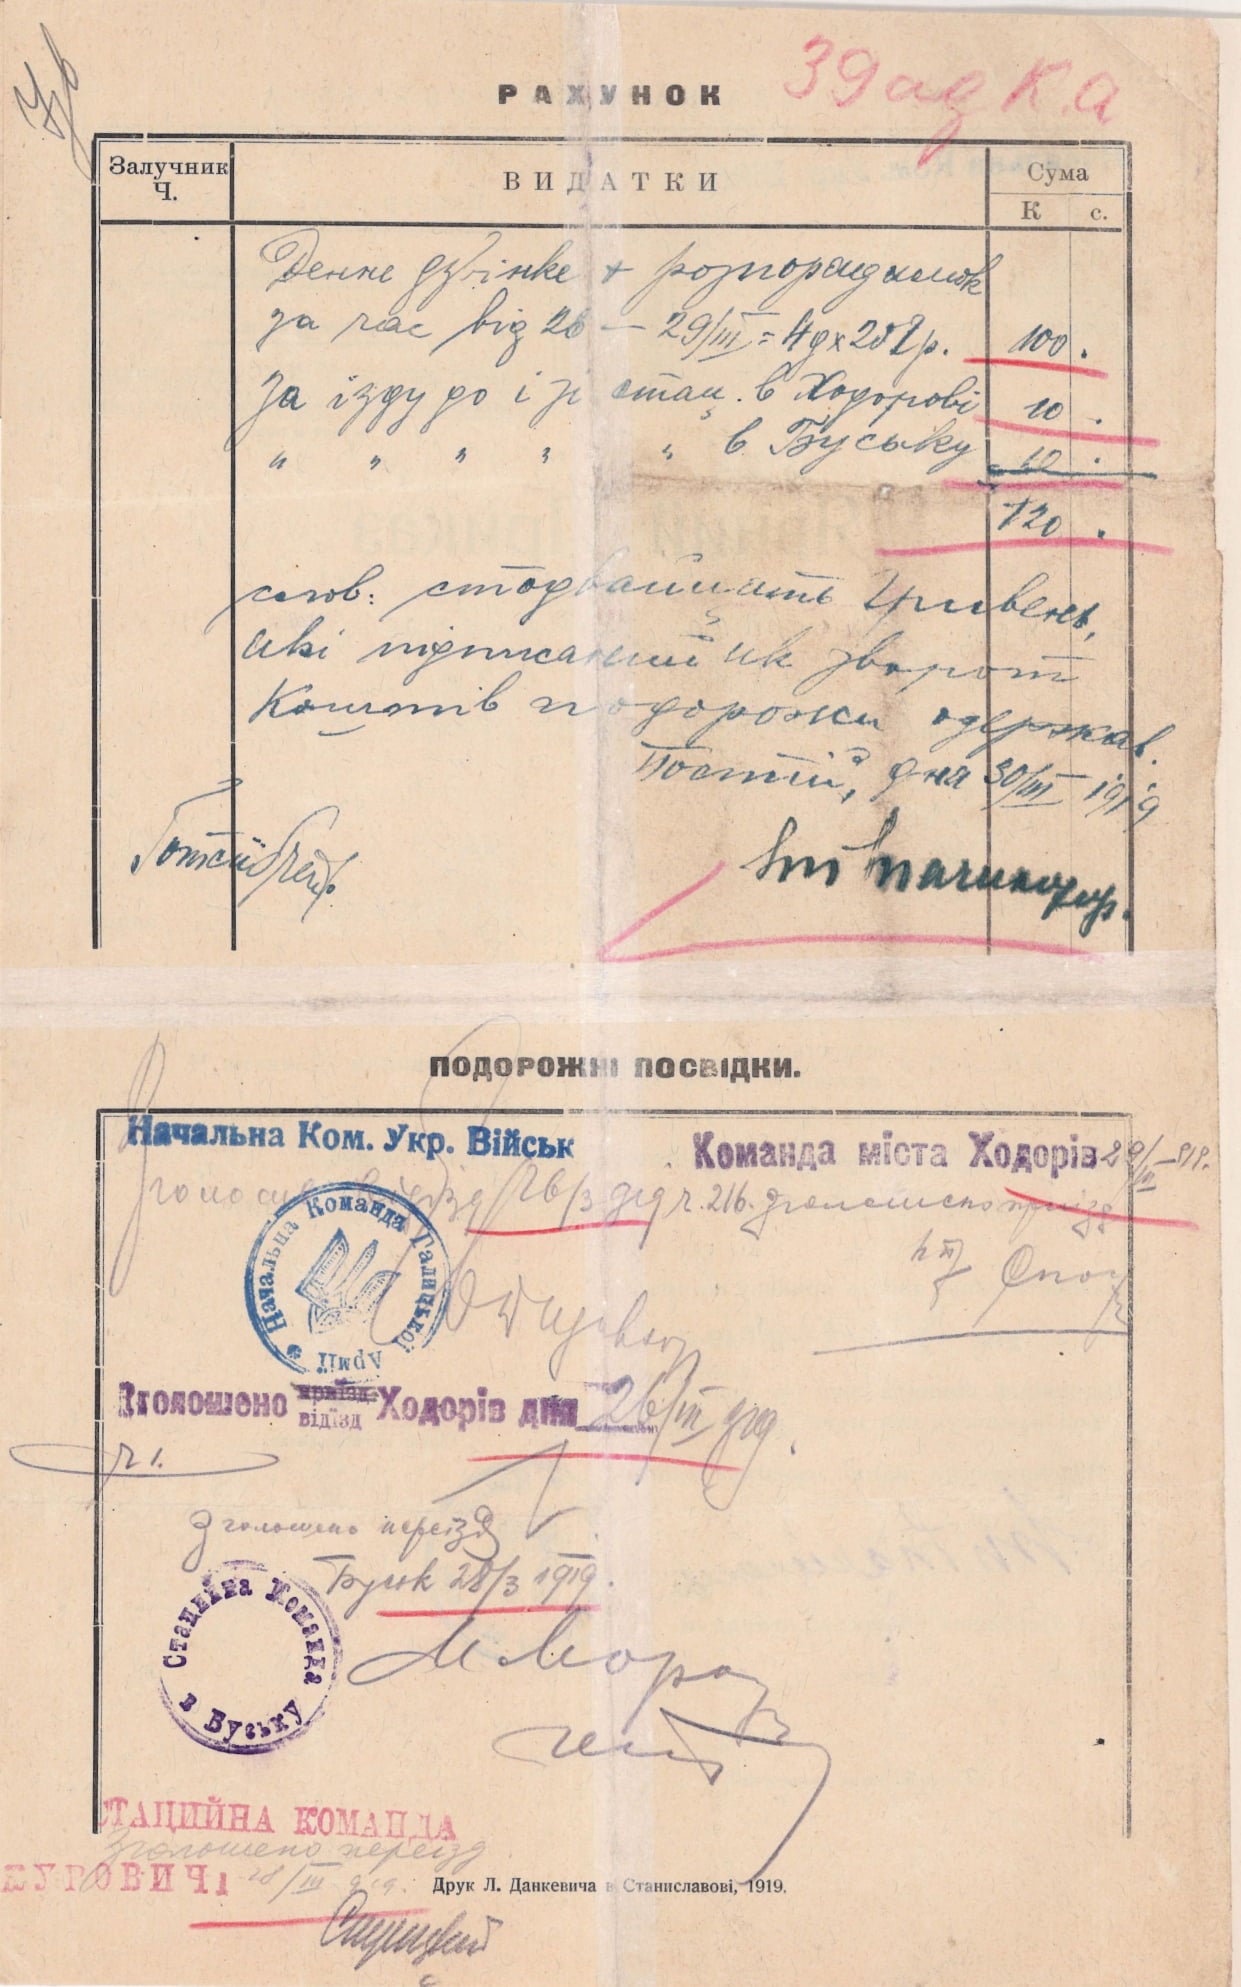 39 ад К.А
РАХУНОК
Залучник Ч.
ВИДАТКИ
Сума
К с.
Денне +
за час від 26 — 29/III = 4д х 25 гр. 100.
За їзду до і зі стац. в Ходорові 10.
" " " " " в Буську 10.
120.
слов: стодвайцять гривень,
які підписаний як зворот
коштів подорожи одержав.
Постій, дня 30/III 1919
ПОДОРОЖНІ ПОСВІДКИ.
Начальна Ком. Укр. Військ
Команда міста Ходорів 29/III–919.
26/3 919 ч. 216. зголошено приїзд
Начальна Команда Галицької Армії
Зголошено приїзд відїзд Ходорів дня 26/III 919.
ч 1.
Зголошено переїзд
Буськ 28/3 1919.
Стаційна Команда в Буську
СТАЦИЙНА КОМАНДА
Зголошено переїзд
28/III 919.
Друк Л. Данкевича в Станиславові, 1919.